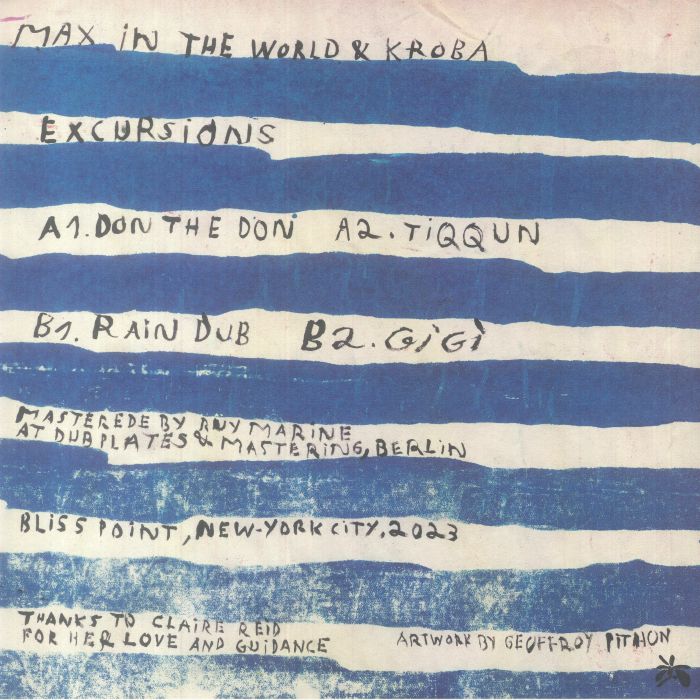 MAX IN THE WORLD & KROBA
EXCURSIONS
A1. DON THE DON A2. TIQQUN
B1. RAIN DUB B2. GIGI
MASTEREDE BY ANY MARINE
AT DUBPLATES & MASTERING, BERLIN
BLISS POINT, NEW-YORK CITY, 2023
THANKS TO CLAIRE REID
FOR HER LOVE AND GUIDANCE
ARTWORK BY GEOFFROY PITHON